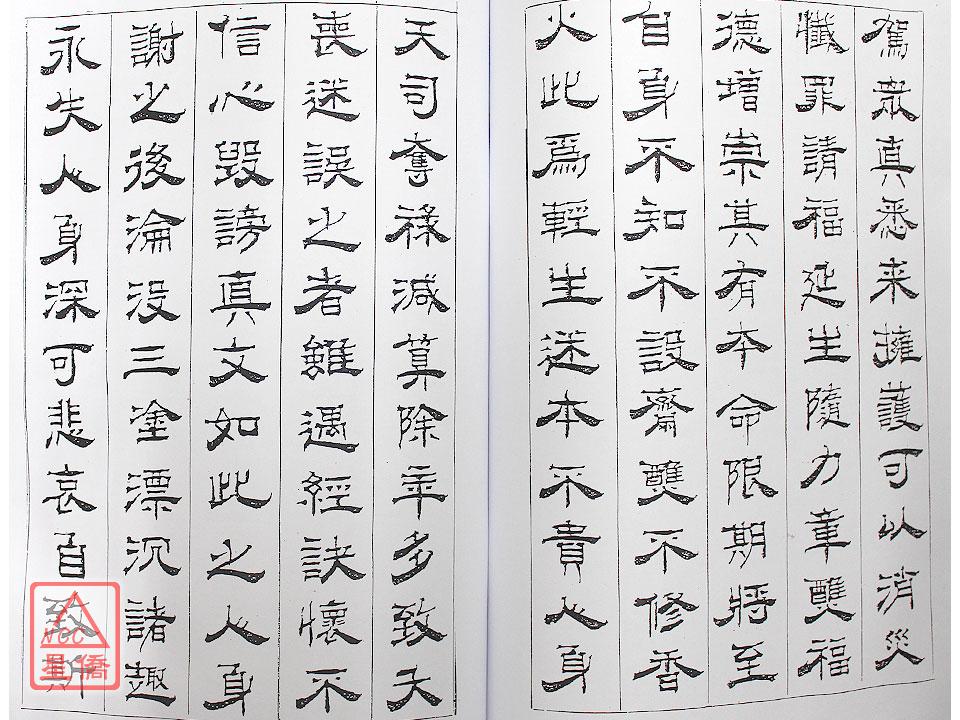 駕眾真悉来擁護可以消災
懺罪請福延生隨力章醮福
德增崇其有本命限期將至
自身不知不設齋醮不修香
火此為輕生迷本不貴人身
天司奪祿減算除年多致夭
喪迷誤之者雖遇經訣懷不
信心毀謗真文如此之人身
謝之後淪没三塗漂沉諸趣
永失人身深可悲哀自致斯
VCC
星僑